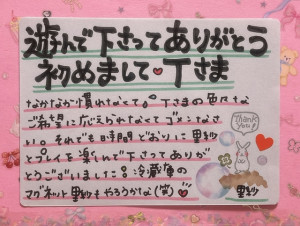 遊んで下さってありがとう
初めまして♥Tさま
なかなか慣れなくて。Tさまの色々な
ご希望に応えられなくてゴメンなさ
い。それでも時間どおりに里紗
とプレイを楽しんで下さってありが
とうございました!冷蔵庫の
マグネット里紗もやろうかな(笑)♥
Thank you!
里紗